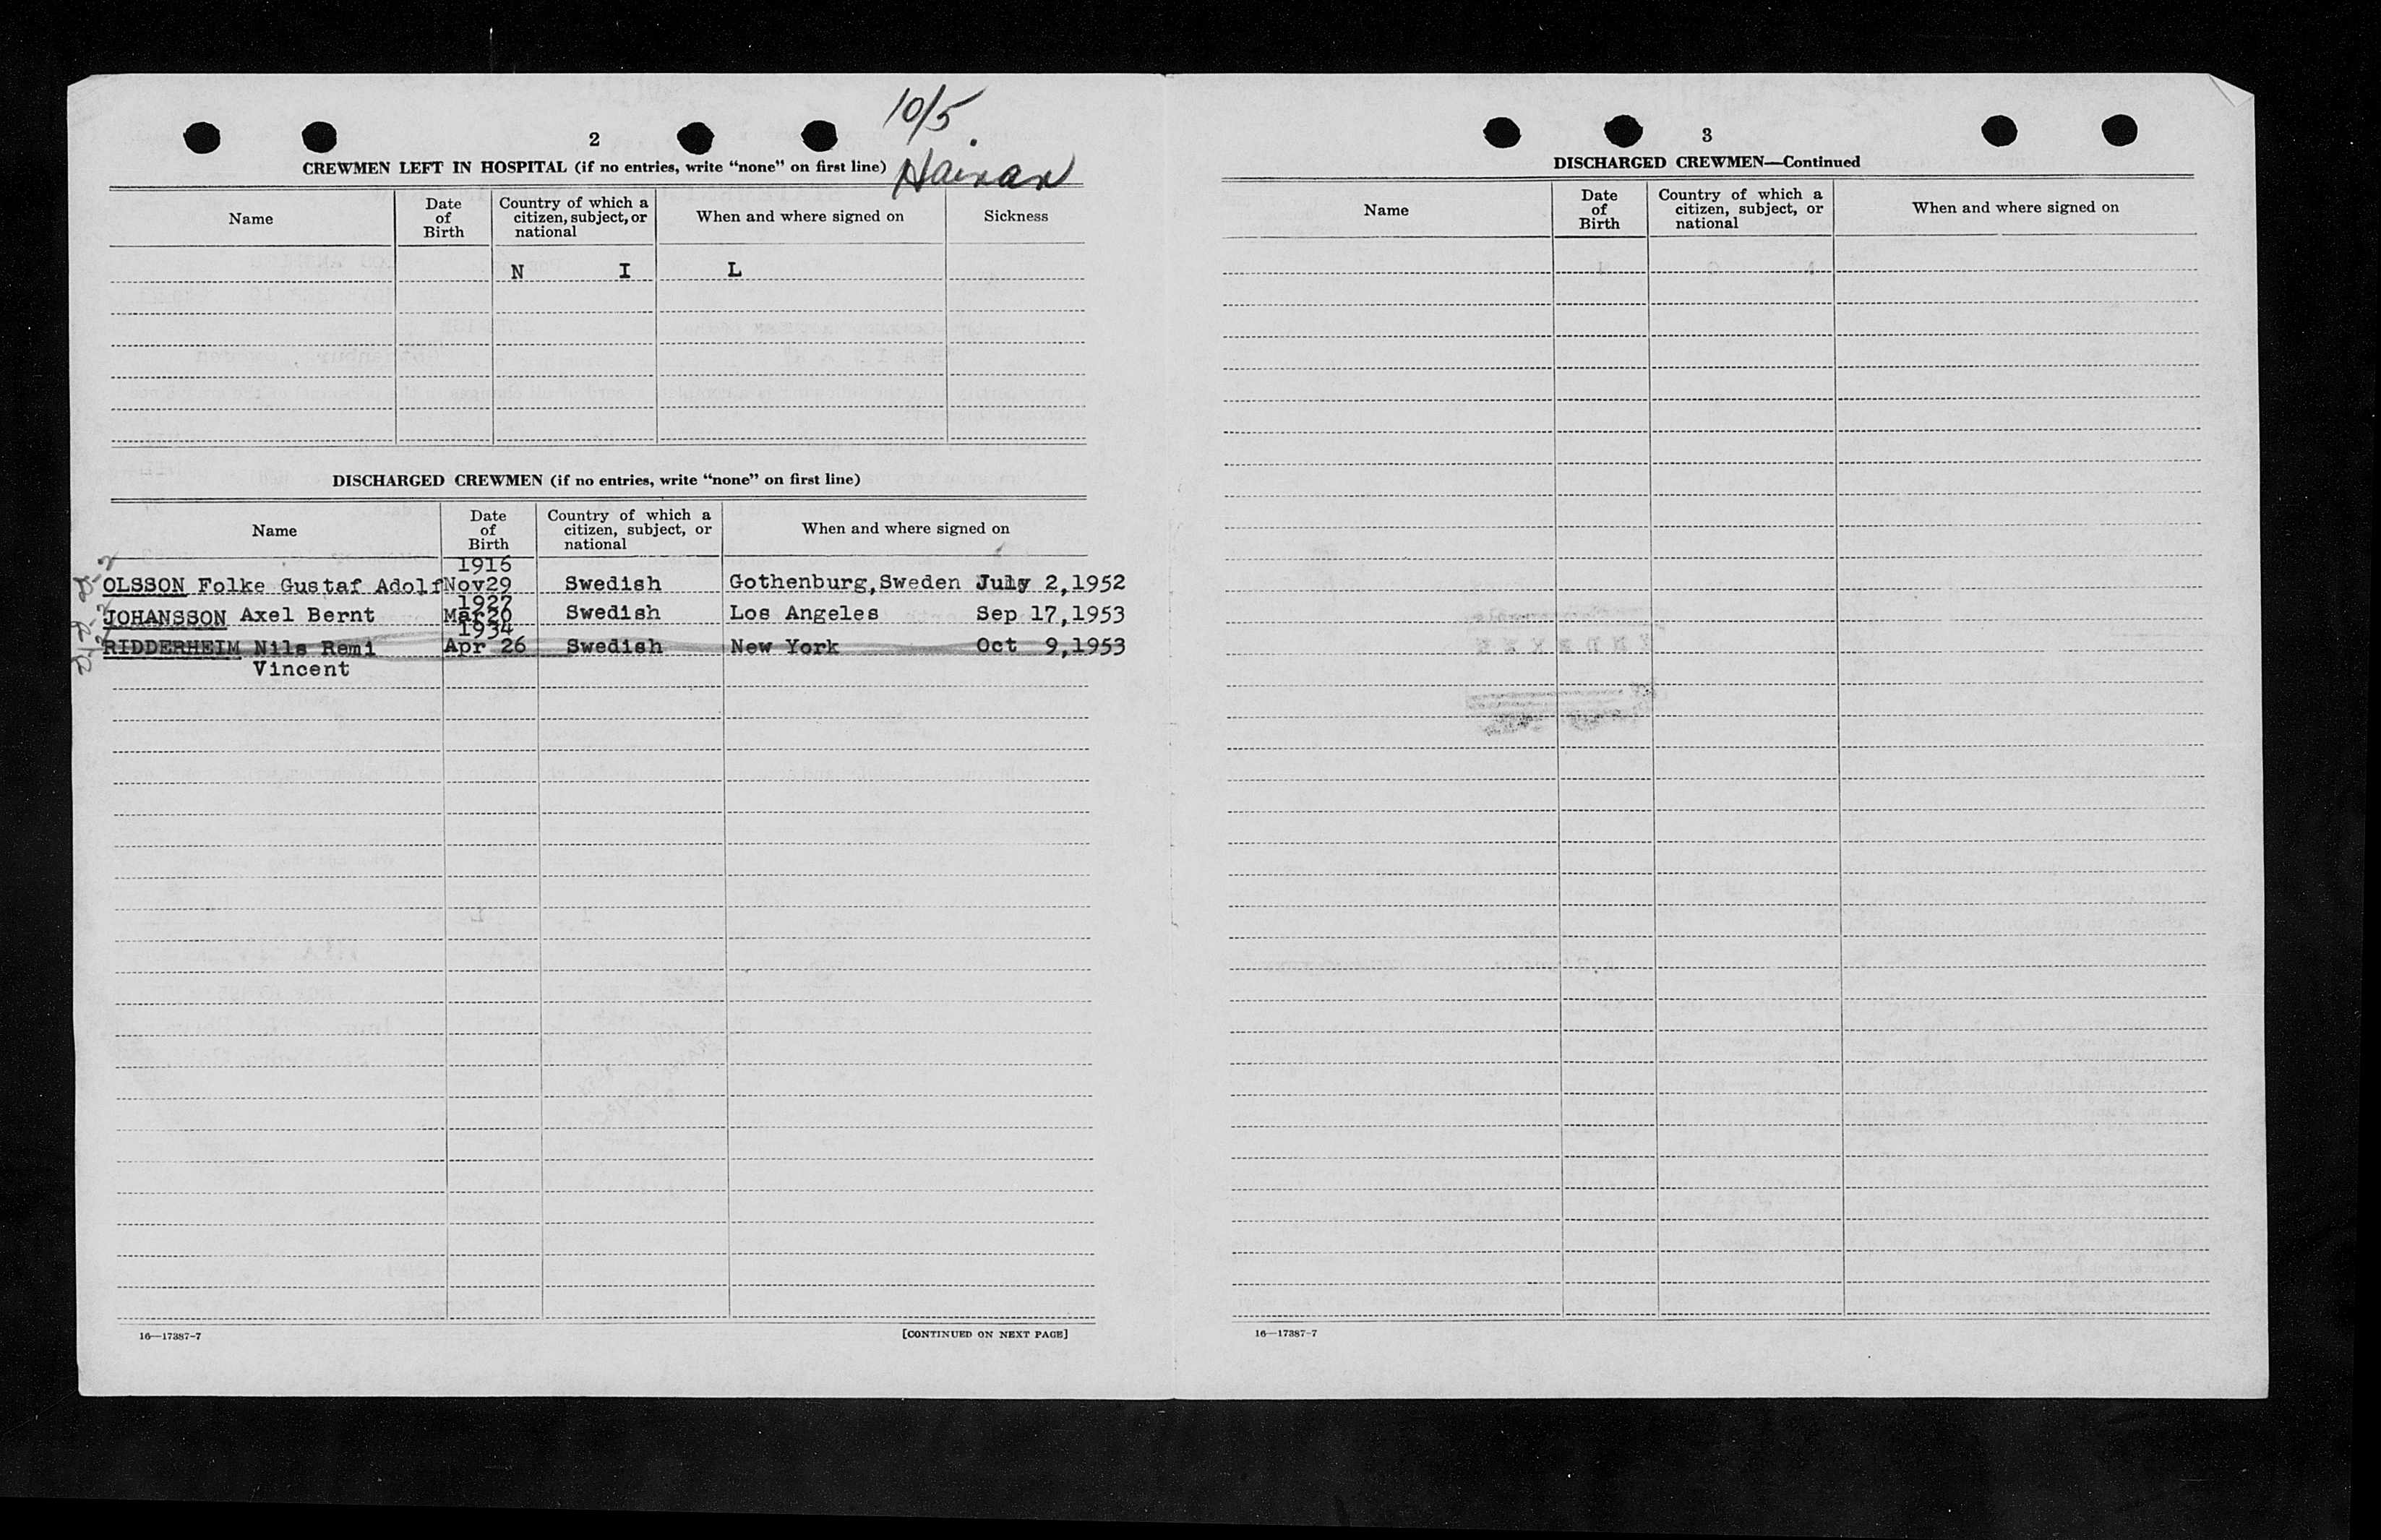 10/5
2
CREWMEN LEFT IN HOSPITAL (if no entries, write "none" on first line) Hainan
Name Date of Birth Country of which a citizen, subject, or national When and where signed on Sickness
N I L
DISCHARGED CREWMEN (if no entries, write "none" on first line)
Name Date of Birth Country of which a citizen, subject, or national When and where signed on
1916
OLSSON Folke Gustaf Adolf Nov 29 Swedish Gothenburg, Sweden July 2, 1952
1927
JOHANSSON Axel Bernt Mar 20 Swedish Los Angeles Sep 17, 1953
1934
RIDDERHEIM Nils Remi Apr 26 Swedish New York Oct 9, 1953
Vincent
16—17387-7 [CONTINUED ON NEXT PAGE]
3
DISCHARGED CREWMEN—Continued
Name Date of Birth Country of which a citizen, subject, or national When and where signed on
16—17387-7